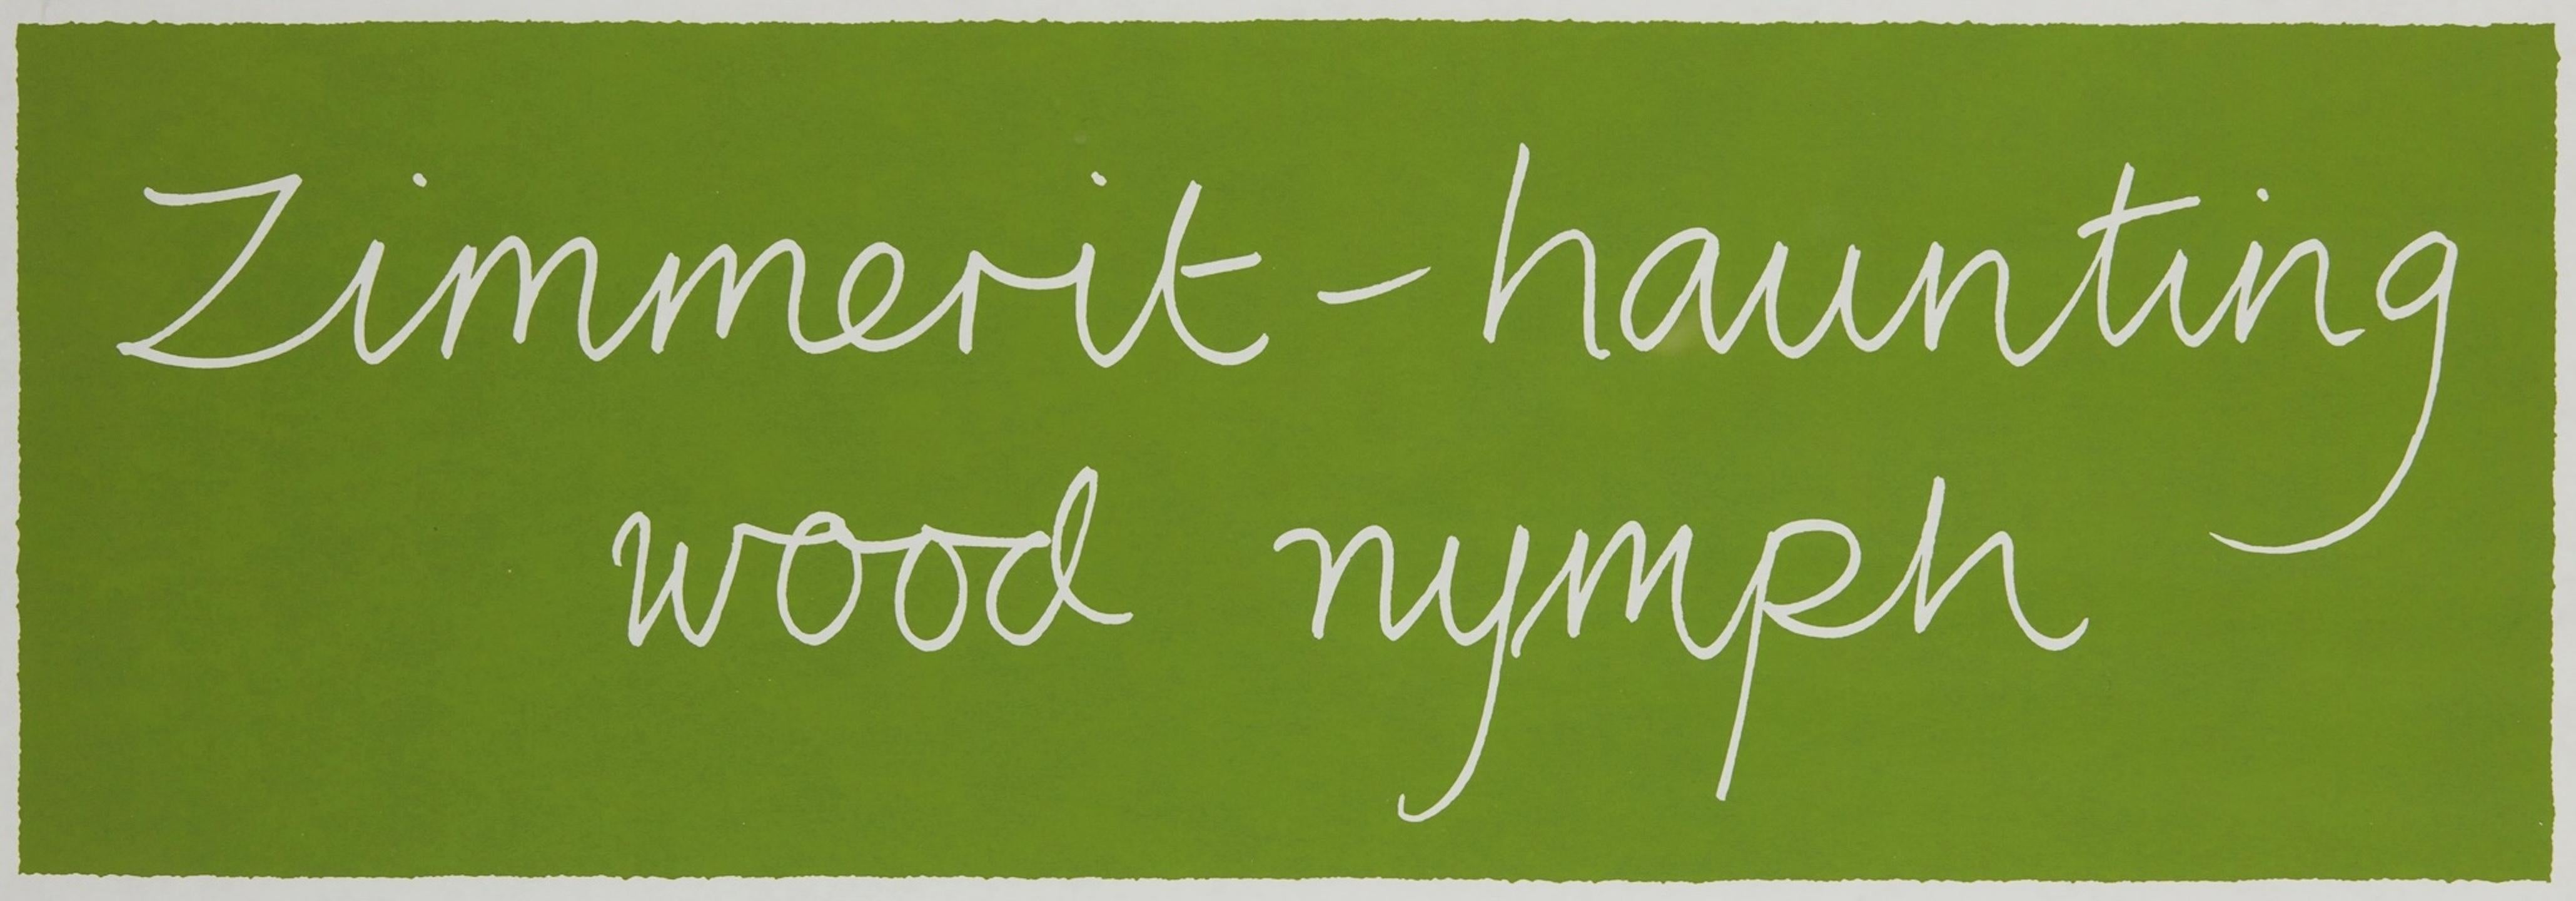 Zimmerit-haunting
wood nymph